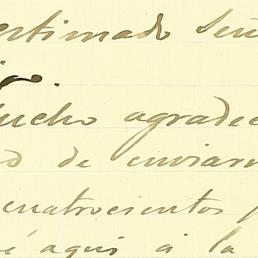 estimado Señ
ucho agradec
d de enviarm
cuatrocientos p
é aqui á la